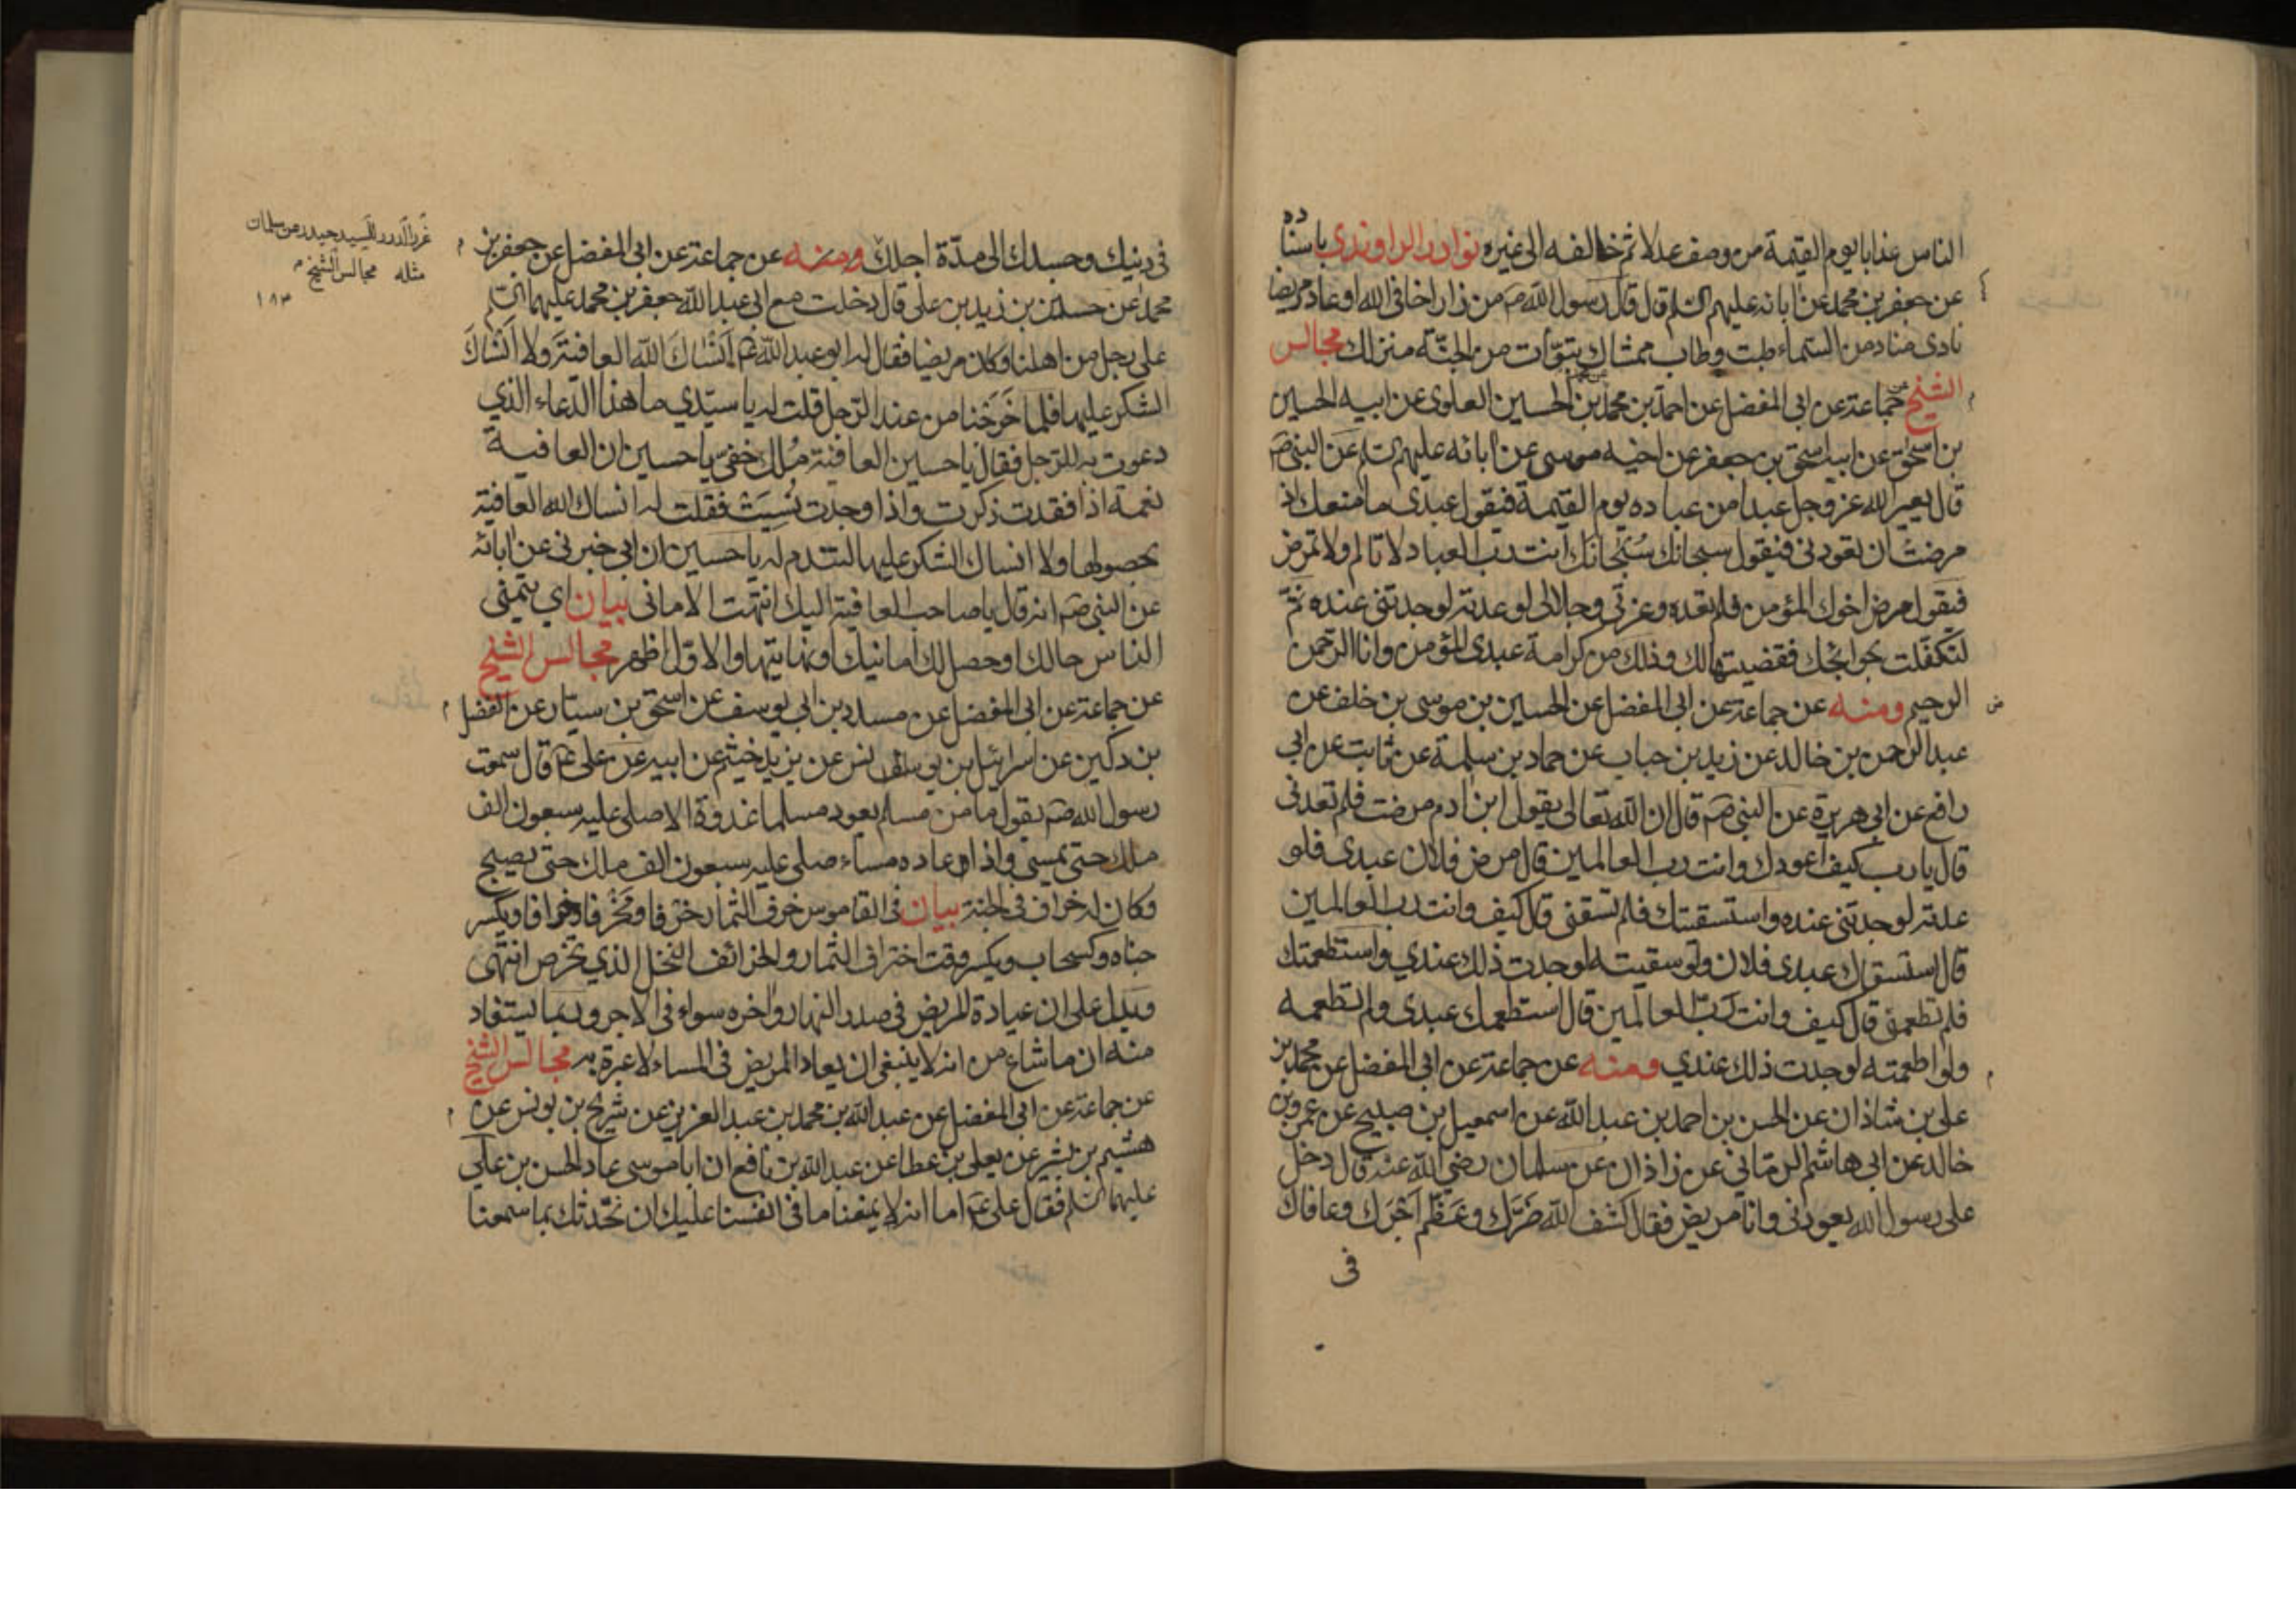 الناس عذابا يوم القيمة من وصف عدلا ثم خالفه الى غيره نوادر الراوندي باسناده
عن جعفر بن محمد عن ابائه عليهم السلم قال قال رسول الله صم من زار اخاه في الله او عاد مريضا
نادى مناد من السماء طبت وطاب ممشاك بتوّات من الجنّة منزلك مجالس
الشيخ عن جماعة عن ابى المفضل عن احمد بن محمد بن الحسين العلوى عن ابيه الحسين
بن اسحق عن ابيه اسحق بن جعفر عن اخيه موسى عن ابائه عليهم السلم عن النبى صم
قال يعير الله عز وجل عبدا من عباده يوم القيمة فيقول عبدى ما منعك اذ
مرضت ان تعودنى فيقول سبحانك سُبْحَانَك انت رب العباد لا تالم ولا تمرض
فيقول مرض اخوك المؤمن فلم تعده وعزتى وجلالى لو عدته لوجدتنى عنده ثمّ
لتكفّلت بحوائجك فقضيتها لك وذلك من كرامة عبدى المؤمن وانا الرحمن
الرحيم ومنه عن جماعة عن ابى المفضل عن الحسين بن موسى بن خلف عن
عبد الرحمن بن خالد عن زيد بن حباب عن حماد بن سلمة عن ثابت عن ابى
رافع عن ابى هريرة عن النبى صم قال ان الله تعالى يقول ابن ادم مرضت فلم تعدنى
قال يا رب كيف اعودك وانت رب العالمين قال مرض فلان عبدى فلو
عدته لوجدتنى عنده واستسقيتك فلم تسقنى قال كيف وانت رب العالمين
قال استسقاك عبدى فلان ولو سقيته لوجدت ذلك عندي واستطعمتك
فلم تطعمنى قال كيف وانت ربّ العالمين قال استطعمك عبدى ولم تطعمه
ولو اطعمته لوجدت ذلك عندي ومنه عن جماعة عن ابى المفضل عن محمد بن
على بن شاذان عن الحسن بن احمد بن عبد الله عن اسمعيل بن صبيح عن عمرو بن
خالد عن ابى هاشم الرمّانى عن زاذان عن سلمان رضي الله عنه قال دخل
على رسول الله يعودنى وانا مريض فقال كشف الله ضرّك وعَظّم اَجْرَك وعافاك
فى
فى دينك وجسدك الى مدّة اجلك ومنه عن جماعة عن ابى المفضل عن جعفر بن
محمد عن حسين بن زيد بن على قال دخلت مع ابى عبد الله جعفر بن محمد عليهما السلم
على رجل من اهلنا وكان مريضا فقال له ابو عبد الله عم اَنْسَاكَ الله العافيَةَ وَلا اَنْسَاكَ
الشكر عليها فلما خَرَجْنا من عند الرّجل قلت له يا سيّدي ما هذا الدّعاء الذي
دعوت به للرجل فقال يا حسين العافية مُلك خفىّ يا حسين ان العافية
نعمة اذا فقدت ذكرت واذا وجدت نُسِيَتْ فقلت له انساك الله العافية
بحصولها ولا انساك الشكر عليها لتدم له يا حسين ان ابى خبرنى عن ابائه
عن النبى صم انه قال يا صاحب العافية اليك انتهت الامانى بيان اي يتمنى
الناس حالك او حصل لك امانيك او نهايتها والاوّل اظهر مجالس الشيخ
عن جماعة عن ابى المفضل عن مسدد بن ابى يوسف عن اسحق بن سيّار عن الفضل
بن دكين عن اسرائيل بن يونس عن بزيد خيثم عن ابيه عن على عم قال سمعت
رسول الله صم يقول ما من مسلم يعود مسلما غدوة الا صلى عليه سبعون الف
ملك حتى يمسى واذا عاده مساء صلى عليه سبعون الف ملك حتى يصبح
وكان له خراف فى الجنة بيان فى القاموس خرف الثمار خرفا ومَخْرفا وخرافا ويكسر
جناه وكسحاب ويكسر وقت اختراف الثمار والخرائف النخل الذي تخرص انتهى
ويدل على ان عيادة المريض فى صدر النهار واخره سواء فى الاجر وربما يستفاد
منه ان ما شاع من انه لا ينبغى ان يعاد المريض فى المساء لا عبرة به مجالس الشيخ
عن جماعة عن ابى المفضل عن عبد الله بن محمد بن عبد العزيز عن شريح بن يونس عن
هشيم بن بشير عن يعلى بن عطا عن عبد الله بن نافع ان ابا موسى عاد الحسن بن علي
عليهما السلم فقال على عم اما انه لا يمنعنا ما فى انفسنا عليك ان نحدّثك بما سمعنا
غرر الدرر للسيد حيدر عن سلمان
مثله مجالس الشيخ
١٨٣